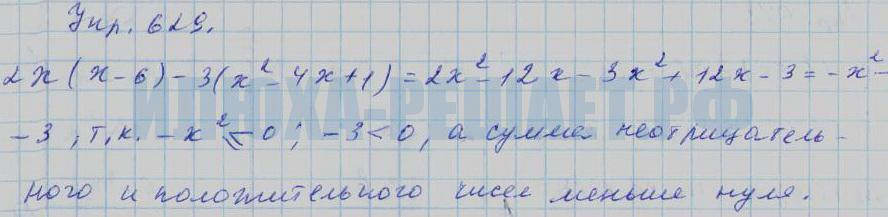 Упр. 629.
2x(x-6)-3(x²-4x+1)=2x²-12x-3x²+12x-3=-x²-
-3, т.к. -x²≤0; -3<0, а сумма неотрицатель-
ного и положительного чисел меньше нуля.
ИЛЮХА-РЕШАЕТ.РФ